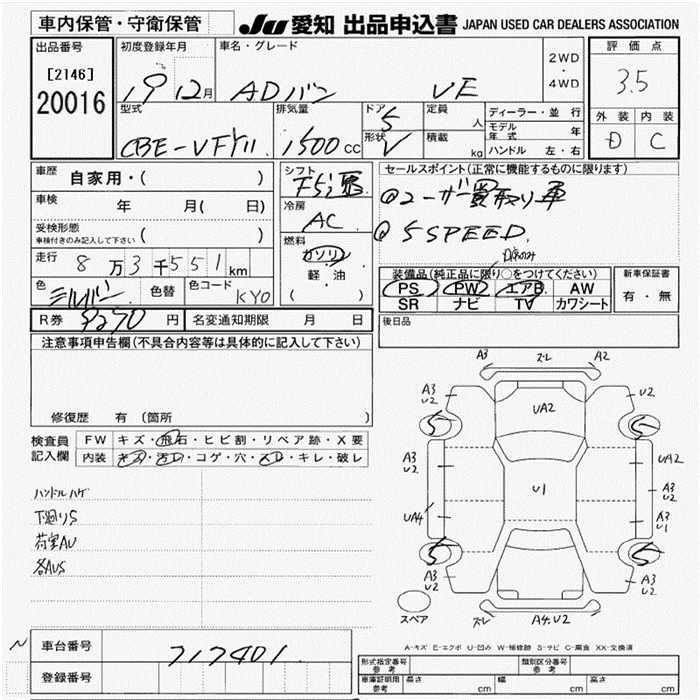 車内保管・守衛保管
JU 愛知 出品申込書 JAPAN USED CAR DEALERS ASSOCIATION
出品番号
[2146]
20016
初度登録年月
19 12月
車名・グレード
ADバン VE
2WD
・
4WD
評価点
3.5
外装 内装
D C
型式
CBE-VFY11
排気量
1500cc
ドア 5
形状 V
定員 人
積載 kg
ディーラー・並行
モデル年式 年
ハンドル 左・右
車歴 自家用・( )
車検 年 月( 日)
受検形態 ( )
車検付きのみ記入して下さい
走行 8万3千551km
色 シルバー 色替 色コード KY0
シフト F5
冷房 AC
燃料
ガソリン
軽油
( )
セールスポイント(正常に機能するものに限ります)
@ユーザー買取り車
@ 5SPEED.
装備品(純正品に限り○をつけてください)
PS PW エアB AW
SR ナビ TV カワシート
新車保証書
有・無
R券 円 名変通知期限 月 日
後日品
注意事項申告欄(不具合内容等は具体的に記入して下さい)
修復歴 有(箇所
検査員 FW キズ・飛石・ヒビ割・リペア跡・X要
記入欄 内装 キズ・汚レ・コゲ・穴・スレ・キレ・破レ
ハンドルハゲ
下廻りS
荷室AU
各AUS
A3 スレ A2
A3 U2 UA2 U2
5 5
A3 U2 UA2
U1 A3 U2
UA4 A3 U1
5 5
A3 U2 A3 U2
スペア スレ A4.U2
A-キズ E-エクボ U-凹み W-補修跡 S-サビ C-腐食 XX-交換済
N 車台番号 717401.
登録番号
型式指定番号 参考 類別区分番号 参考
車庫証明用 参考 長さ cm 幅 cm 高さ cm